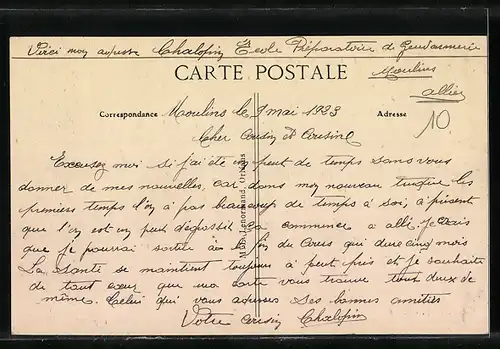 Voici mon adresse Chalopin École Préparatoire de Gendarmerie
CARTE POSTALE
Moulins
Allier
Correspondance
Moulins le 9 mai 1923
Adresse
10
Cher Cousin et Cousine
Excusez moi si j'ai été un peut de temps sans vous
donner de mes nouvelles, car dans mon nouveau les
premiers temps l'on a pas beaucoup de temps à soi, à présent
que l'on est un peut dégrossit ça commence a allé, je crois
que je pourrai sortir à la fin du Cours qui dure cinq mois
La Santé se maintient toujours a peut près et je souhaite
de tout cœur que ma carte vous trouve tout deux de
même. Celui qui vous adresse Ses bonnes amitiés
Votre cousin Chalopin
Lenormand, Orléans